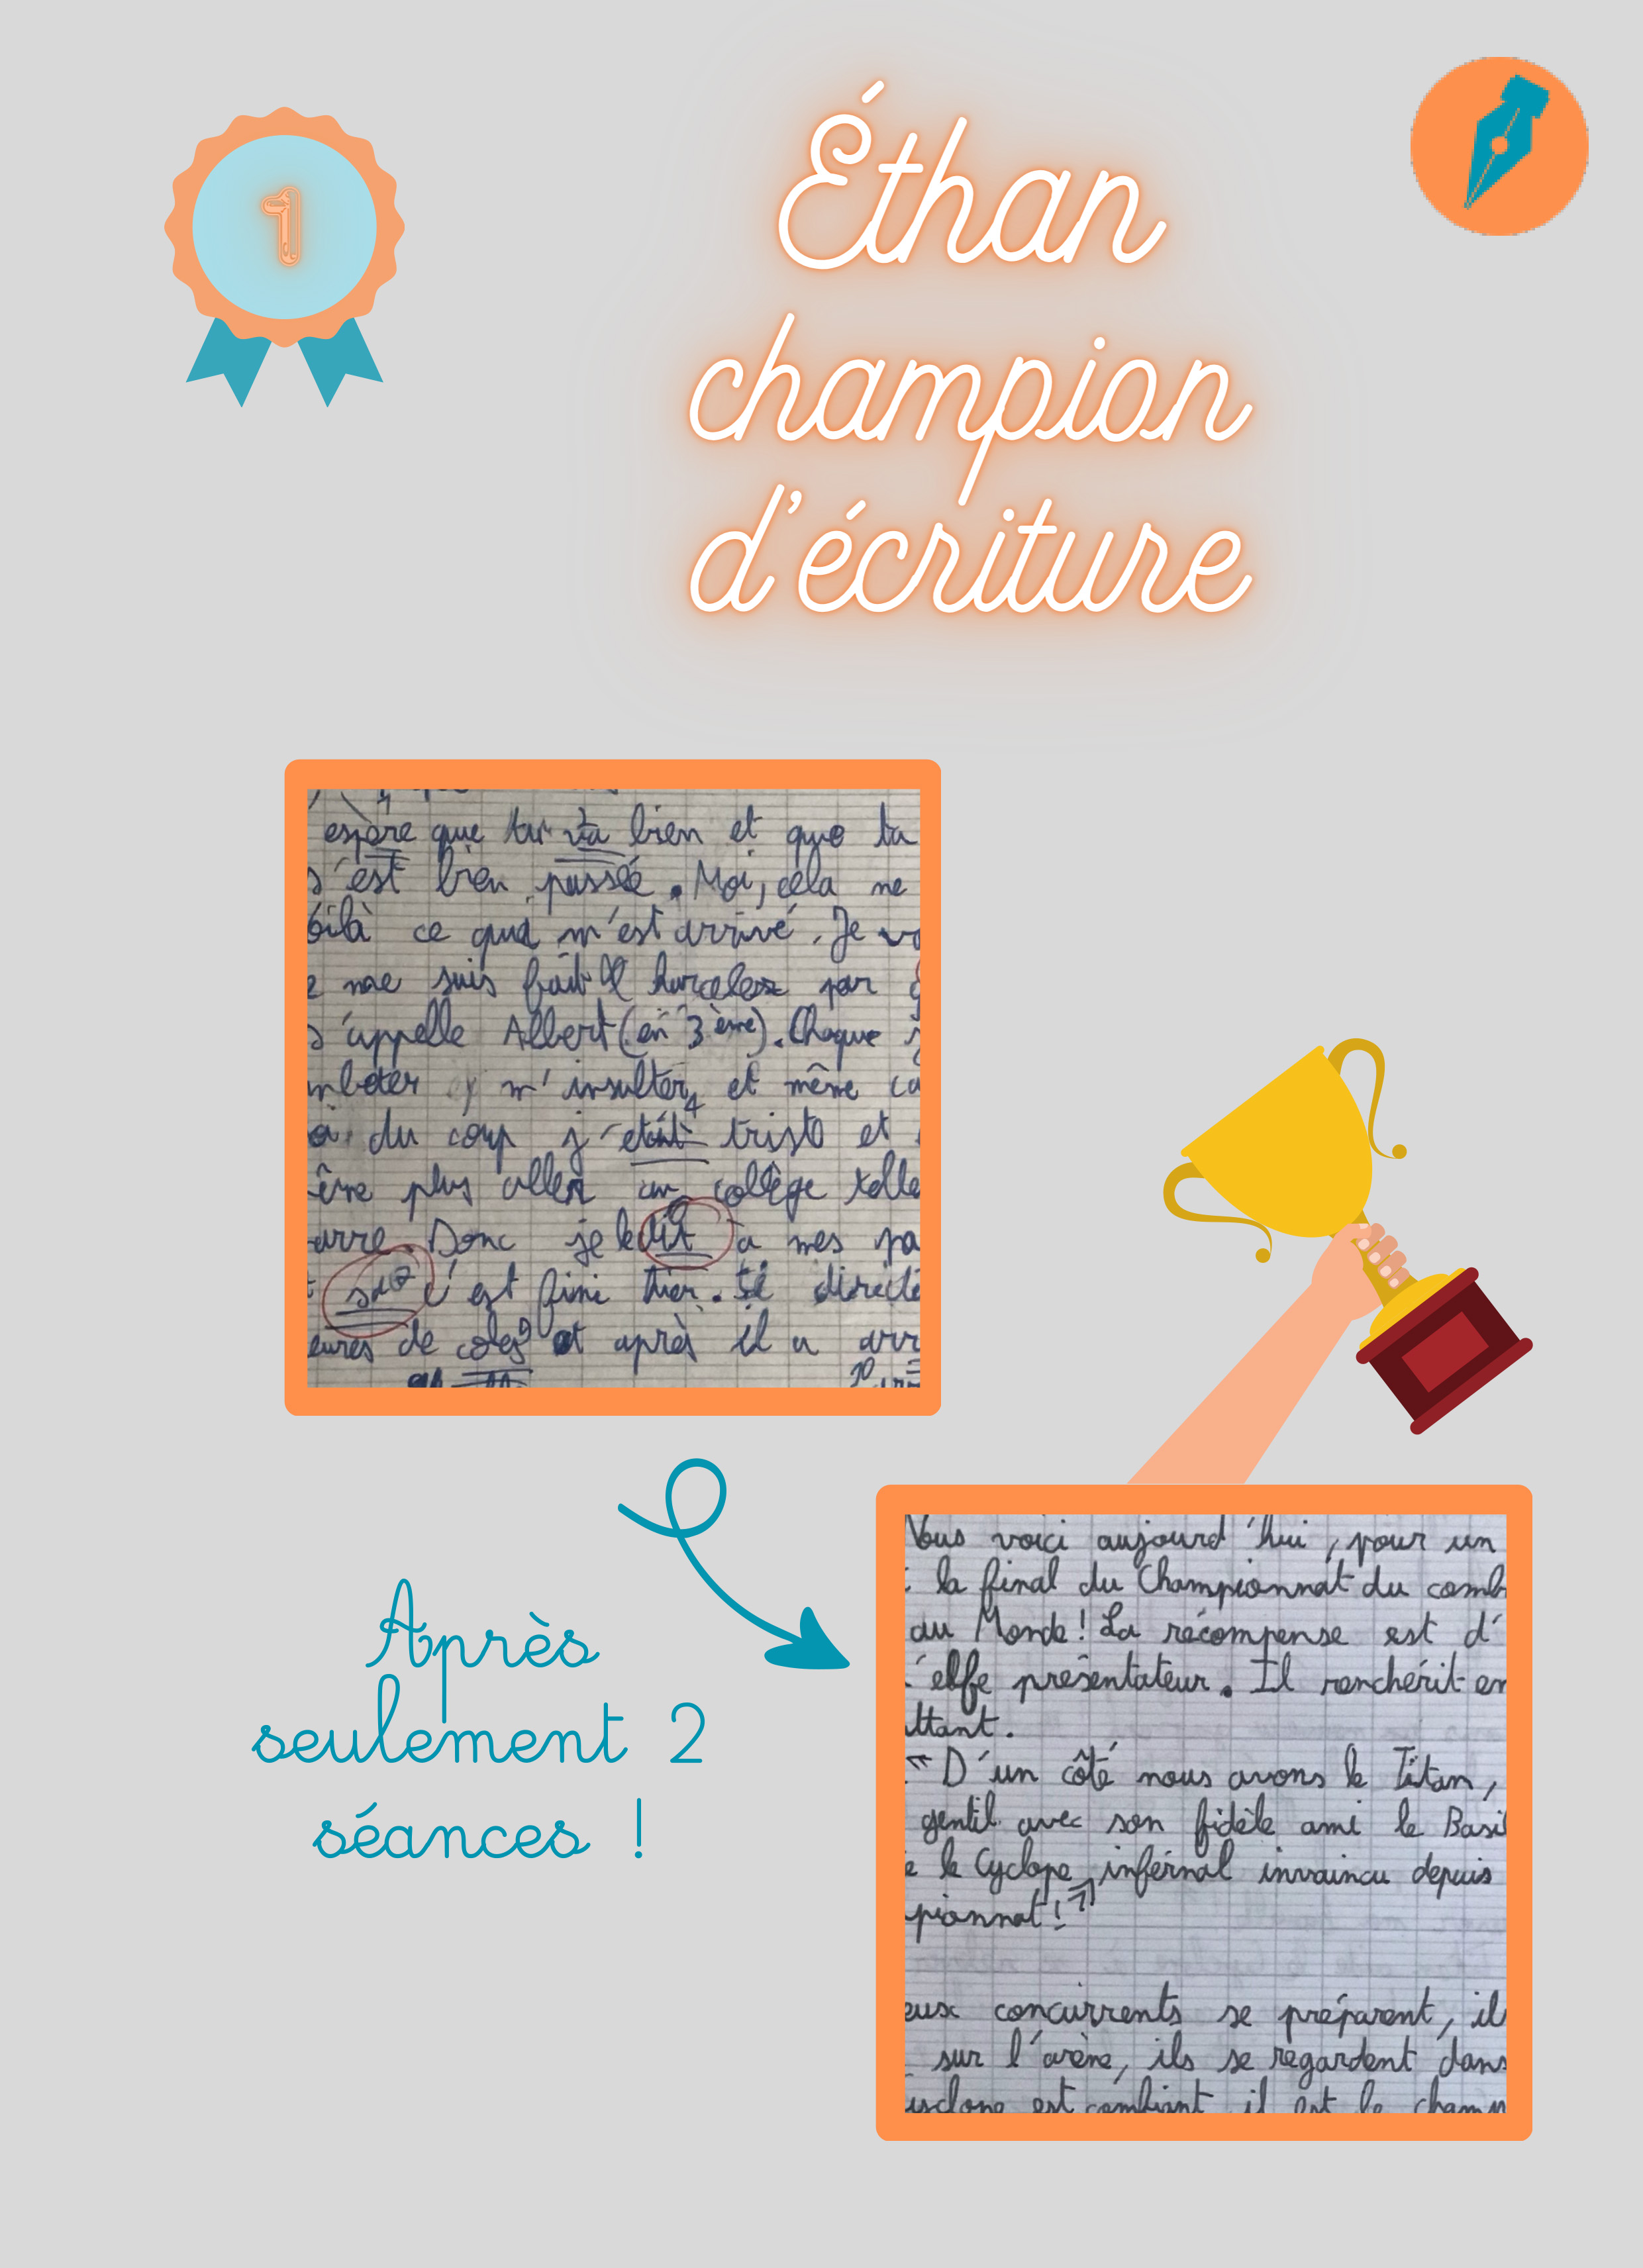 1
Éthan
champion
d'écriture
espère que tu va bien et que ta
s'est bien passée. Moi, cela ne
oilà ce qui m'est arrivé. Je
me suis fait harceler par
s'appelle Albert (en 3ème). Chaque
m'insulter 4 et même
du coup j'etait triste et
plus aller au collège
Donc je le dit à mes pa
c'est fini hier.
eures de coles 9 et après il a arr
10
Après
seulement 2
séances !
Vous voici aujourd'hui, pour un
la final du Championnat du comb
au Monde! La récompense est d'
'elfe présentateur. Il renchérit en
ttant.
« D'un côté nous avons le Titan,
gentil avec son fidèle ami le Basil
e le Cyclope infernal invaincu depuis
pionnat! »
eux concurrents se préparent, il
sur l'arène, ils se regardent dans
est confiant il est le champ